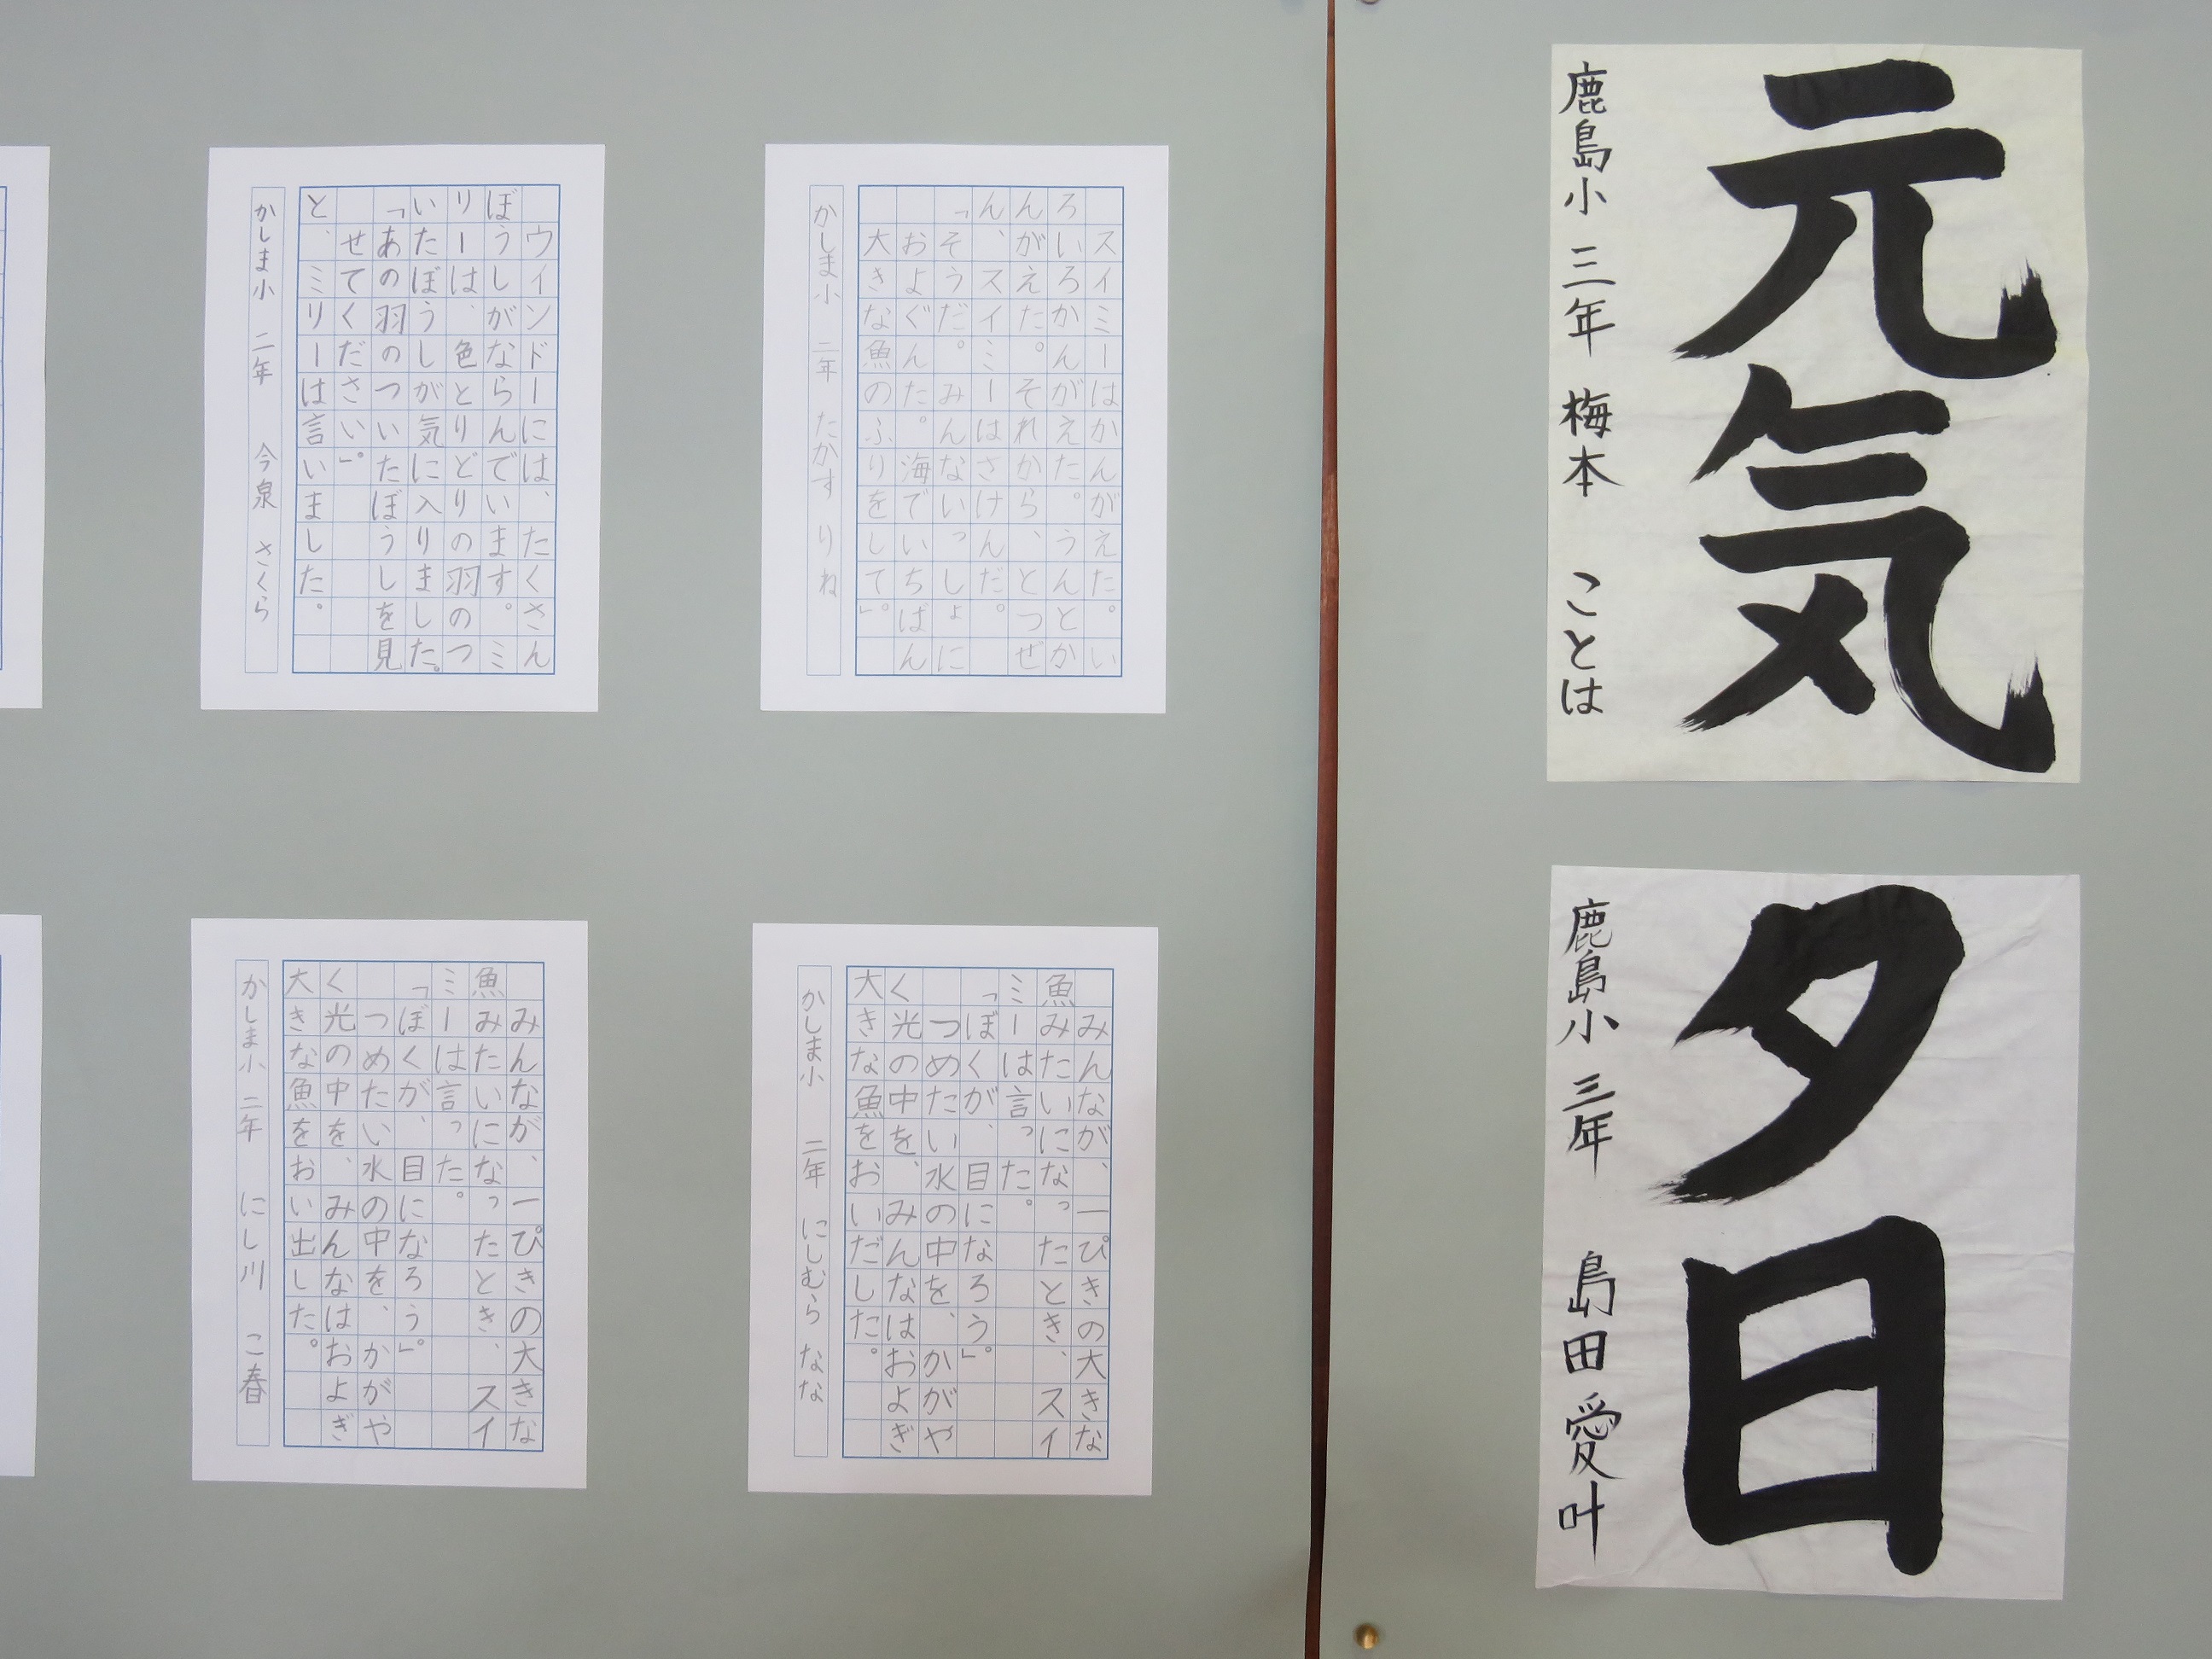 元気
鹿島小 三年 梅本 ことは
夕日
鹿島小 三年 島田愛叶
スイミーはかんがえた。い
ろいろかんがえた。うんとか
んがえた。それから、とつぜ
ん、スイミーはさけんだ。
「そうだ。みんないっしょに
およぐんだ。海でいちばん
大きな魚のふりをして。」
かしま小 二年 たかす りね
ウィンドーには、たくさん
ぼうしがならんでいます。ミ
リーは、色とりどりの羽のつ
いたぼうしが気に入りました。
「あの羽のついたぼうしを見
せてください。」
と、ミリーは言いました。
かしま小 二年 今泉 さくら
みんなが、一ぴきの大きな
魚みたいになったとき、スイ
ミーは言った。
「ぼくが、目になろう。」
つめたい水の中を、かがや
く光の中を、みんなはおよぎ
大きな魚をおいだした。
かしま小 二年 にしむら なな
みんなが、一ぴきの大きな
魚みたいになったとき、スイ
ミーは言った。
「ぼくが、目になろう。」
つめたい水の中を、かがや
く光の中を、みんなはおよぎ
大きな魚をおい出した。
かしま小 二年 にし川 こ春